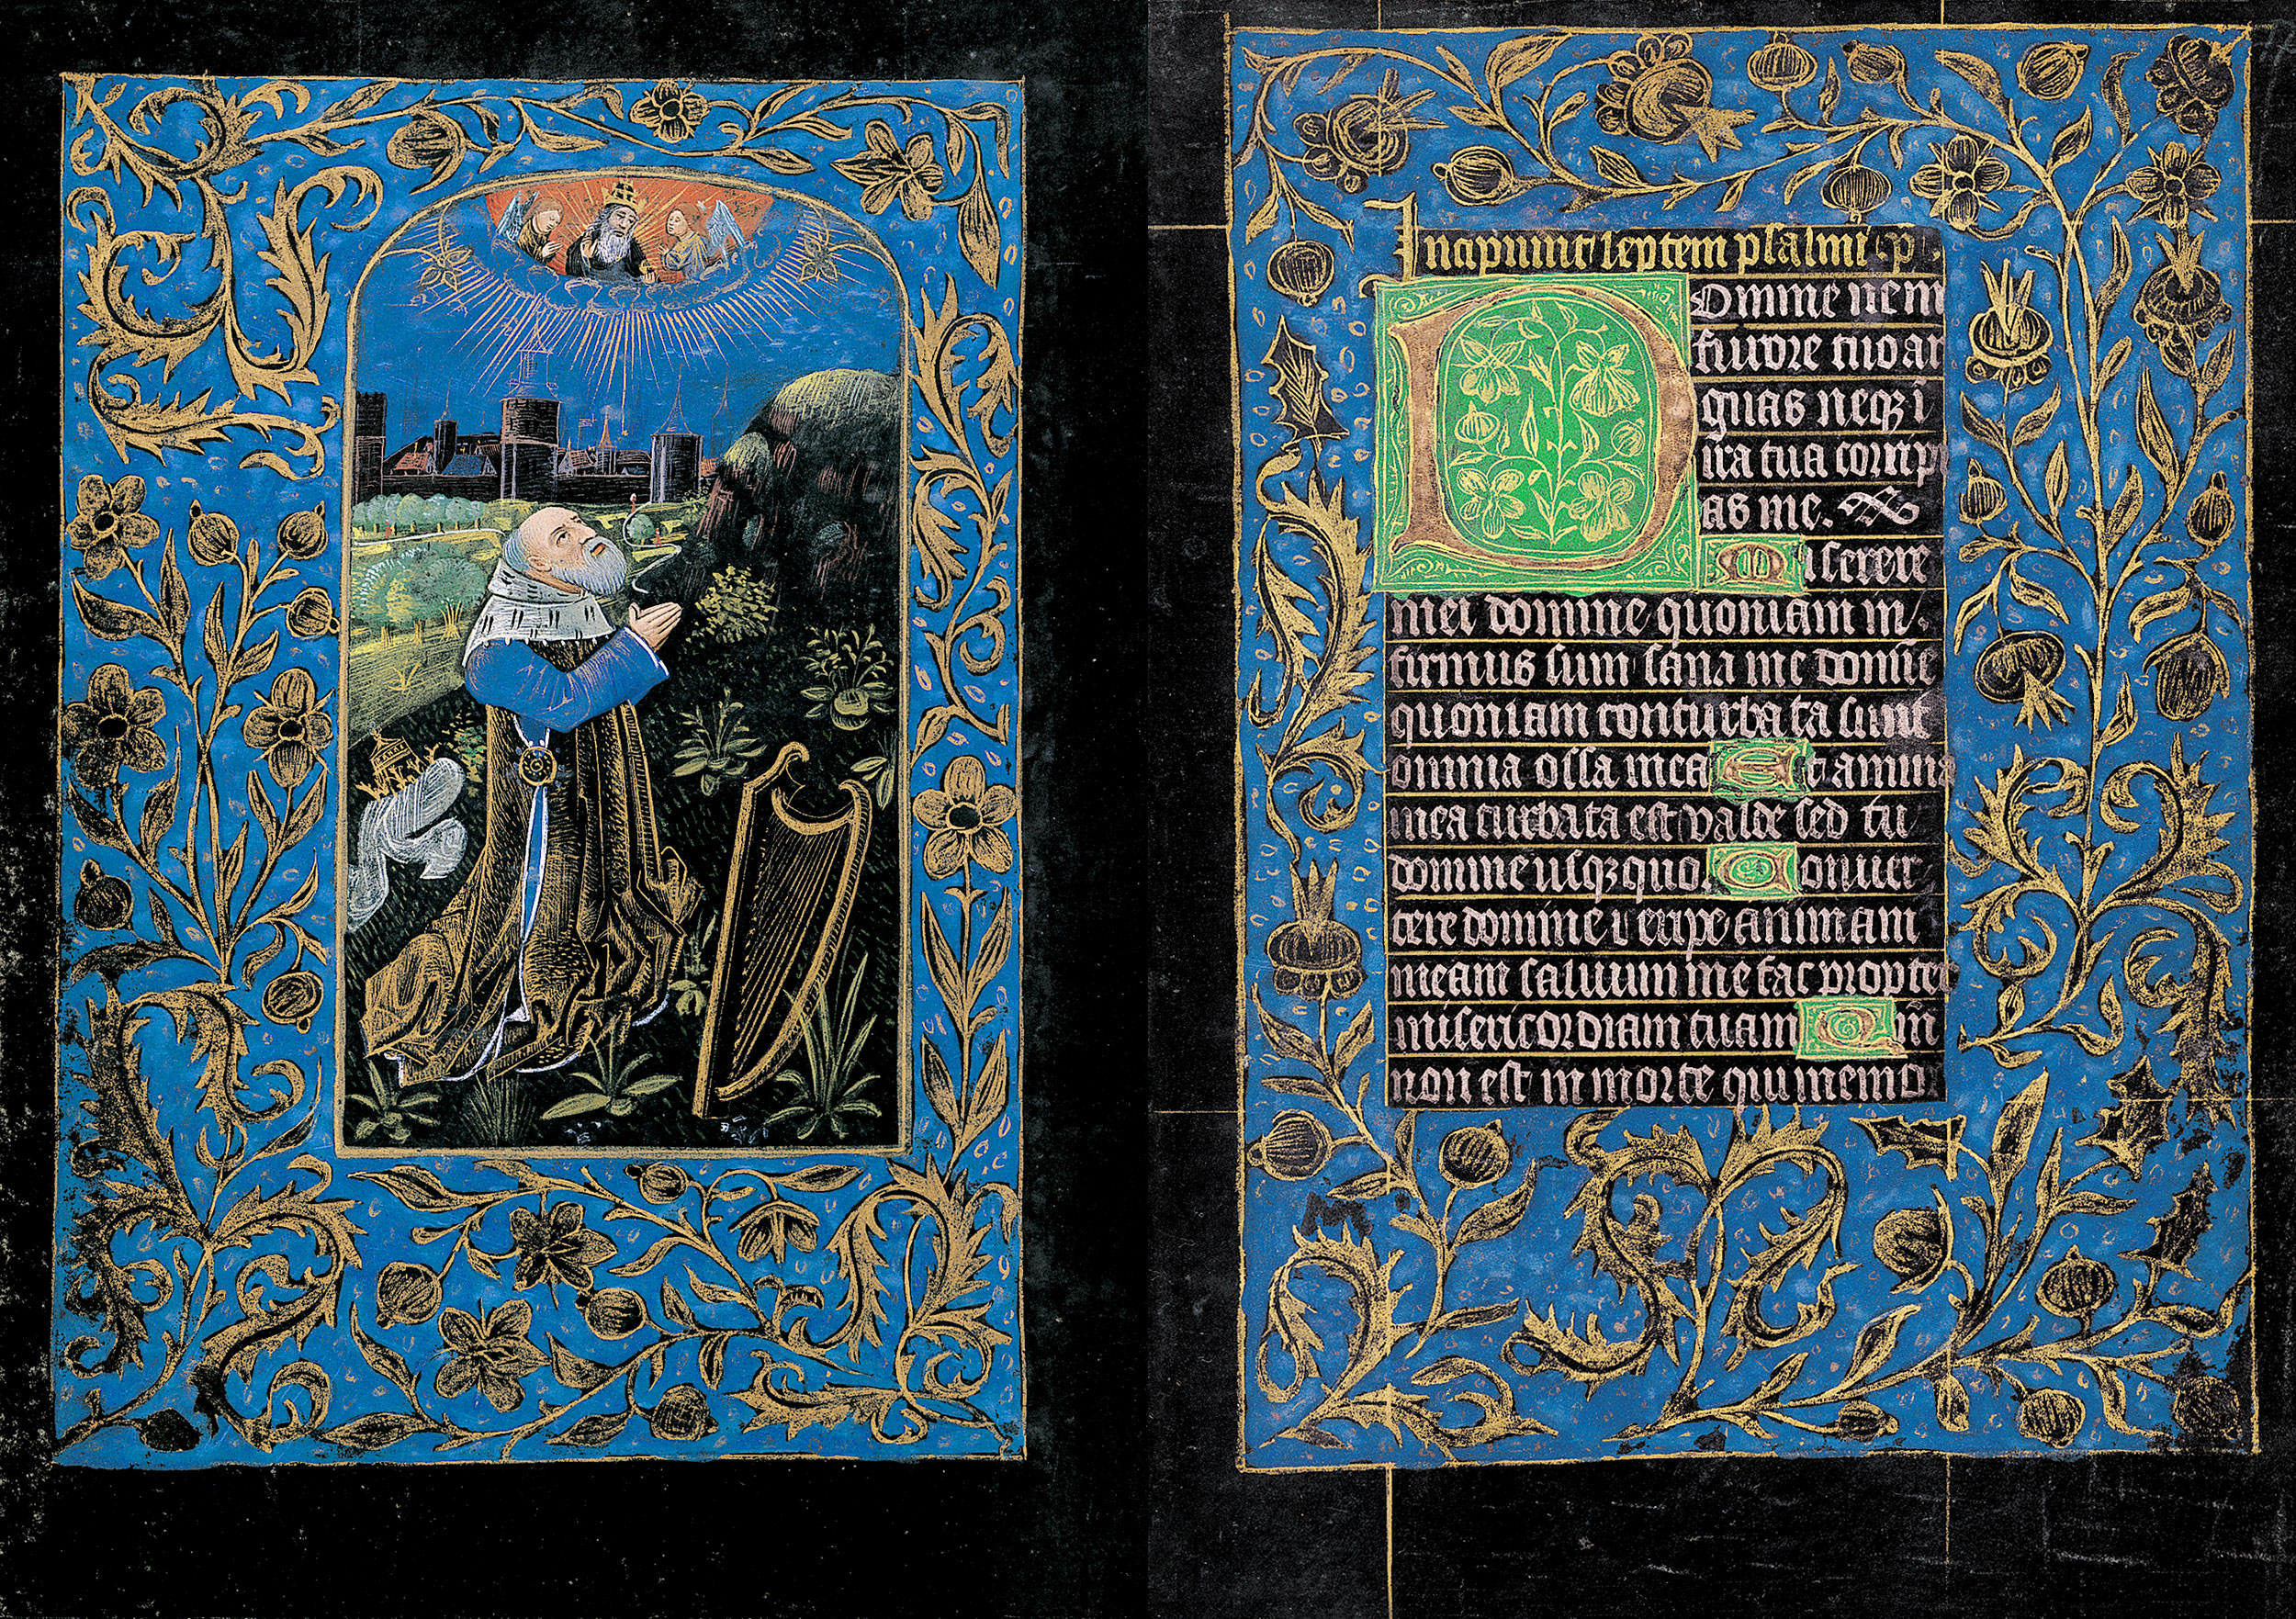 Incipiunt septem psalmi p̄.
Domine ne in
furore tuo ar
guas neqꝫ ī
ira tua corrip
as me.
Miserere
mei domine quoniam in/
firmus sum sana me domīe
quoniam conturbata sunt
omnia ossa mea Et anima
mea turbata est valde sed tu
domine usqꝫ quo. Conuer
tere domine ⁊ eripe animam
meam saluum me fac propter
misericordiam tuam Qm̄
non est in morte qui memor